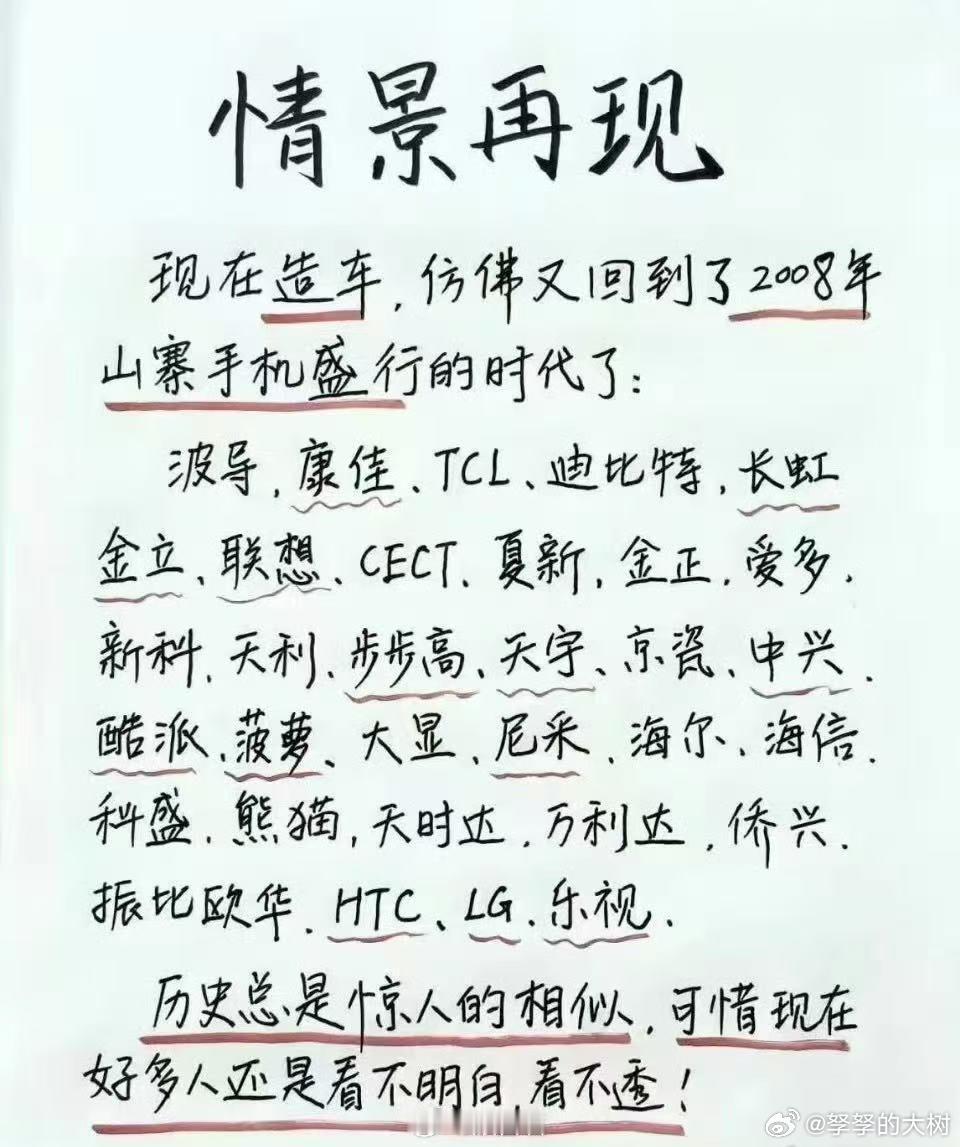 情景再现
现在造车,仿佛又回到了2008年
山寨手机盛行的时代了:
波导,康佳、TCL、迪比特,长虹
金立、联想、CECT、夏新,金正,爱多,
新科,天利、步步高、天宇、京瓷、中兴,
酷派、菠萝、大显、尼采、海尔、海信,
科盛,熊猫,天时达,万利达,侨兴,
振比欧华、HTC、LG、乐视、
历史总是惊人的相似,可惜现在
好多人还是看不明白 看不透!
@孥孥的大树